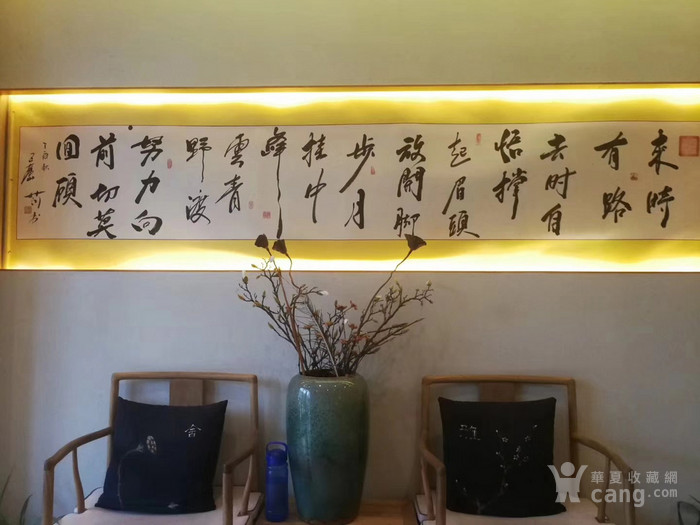 来時
有路
去时自
悟撑
起眉頭
放開脚
步月
挂中
峰
雲青
野渡
努力向
前切莫
回顧
丁酉秋
舍
雅
華夏收藏網
cang.com